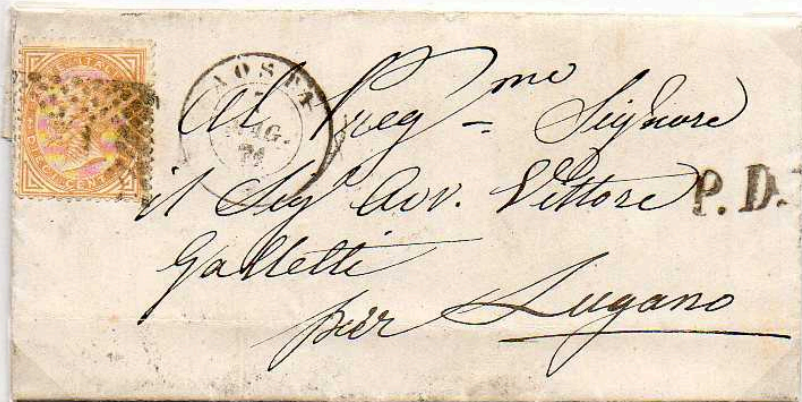 AOSTA
MAG.
71
Al Preg.me Signore
il Sig.r Avv. Vittore
P. D.
Galletti
per Lugano